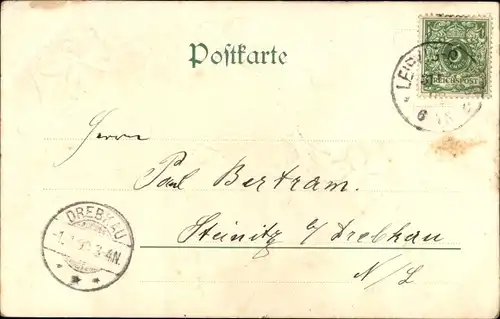 Postkarte
REICHSPOST
Herrn
Paul Bertram.
Steinitz b/ Drebkau
N/L
DREBKAU
3-4N.